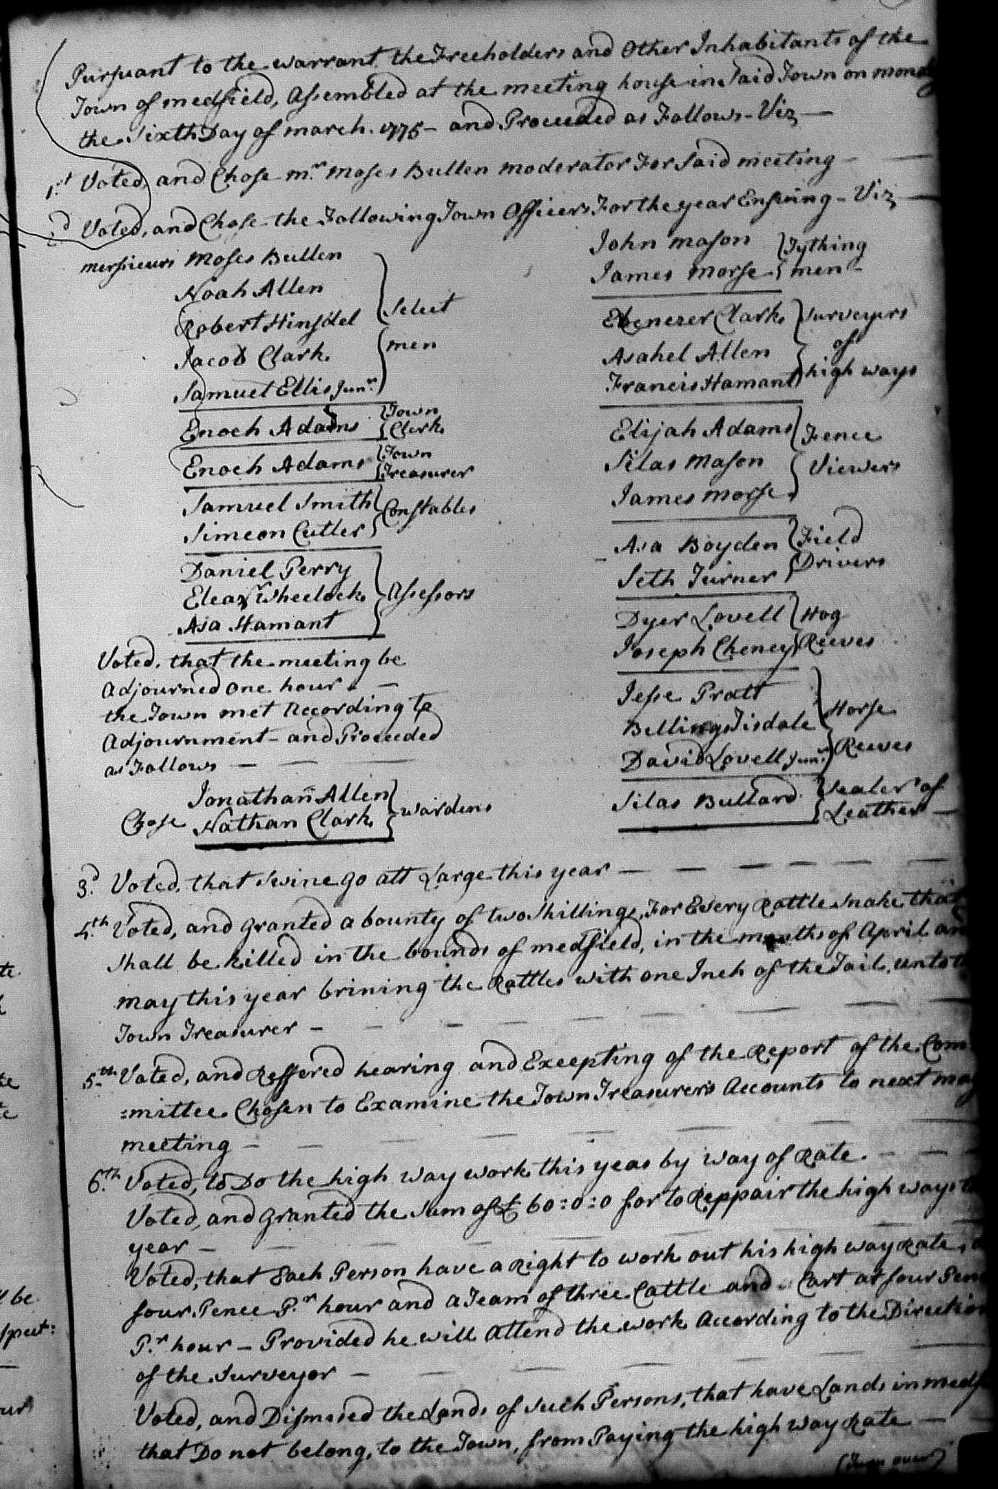 Pursuant to the warrant, the Freeholders and Other Inhabitants of the
Town of medfield, Assembled at the meeting house in Said Town on
the Sixth Day of march. 1775 - and Proceeded as Follows - Viz,
1.st Voted, and Chose mr. Moses Bullen moderator For Said meeting
2d Voted, and Chose the Following Town Officers For the year Ensuing - Viz,
messieurs Moses Bullen
Noah Allen
Robert Hinsdel
Jacob Clark
Samuel Ellis Junr.
Select
men
Enoch Adams
Town
Clerk
Enoch Adams
Town
Treasurer
Samuel Smith
Simeon Cutler
Constables
Daniel Perry
Eleazr Wheelock
Asa Hamant
Assessors
Voted, that the meeting be
Adjourned one hour -
the Town met According to
Adjournment - and Proceeded
as Follows -
Chose
Jonathan Allen
Nathan Clark
wardens
John mason
James morse
Tything
men -
Ebenezer Clark
Asahel Allen
Francis Hamant
Surveyors
of
high ways
Elijah Adams
Silas Mason
James morse
Fence
Viewers
Asa Boyden
Seth Turner
Field
Drivers
Dyer Lovell
Joseph Cheney
Hog
Reeves
Jesse Pratt
Billings Tisdale
David Lovell Junr.
Horse
Reeves
Silas Bullard
Sealer of
Leather -
3d. Voted, that Swine go att Large this year -
4.th Voted, and granted a bounty of two Shillings, For Every Rattle Snake that
Shall be killed in the bounds of medfield, in the months of April and
may this year brining the Rattles with one Inch of the Tail, unto
Town Treasurer -
5.th Voted, and Reffered hearing and Excepting of the Report of the Com
=mittee Chosen to Examine the Town Treasurers Accounts to next may
meeting -
6.th Voted, to Do the high way work this year by way of Rate.
Voted, and granted the Sum of £ 60:0:0 for to Reppair the high ways
year -
Voted, that Each Person have a Right to work out his high way Rate,
four Pence Pr. hour and a Team of three Cattle and Cart at four
Pr. hour - Provided he will Attend the work According to the Direction
of the Surveyor -
Voted, and Dismssed the Lands of Such Persons, that have Lands in
that Do not belong, to the Town, from Paying the high way Rate -
(Turn over)